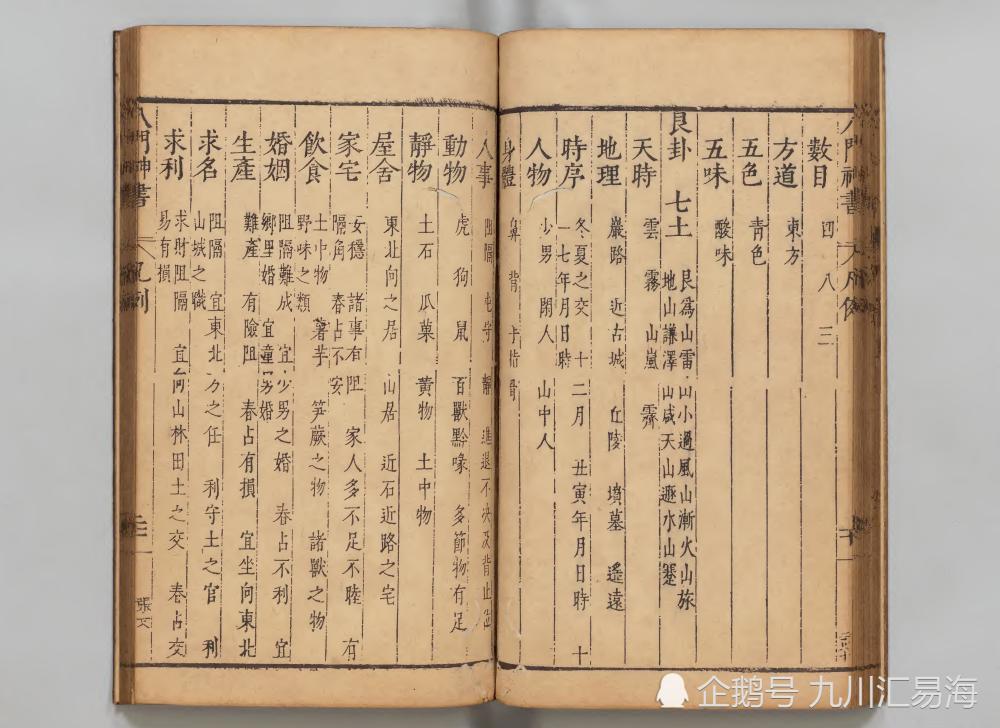 數目 四 八 三
方道 東方
五色 青色
五味 酸味
艮卦 七土 艮為山雷山小過風山漸火山旅
地山謙澤山咸天山遯水山蹇
天時 雲 霧 山嵐 霽
地理 巖路 近古城 丘陵 墳墓 遙遠
時序 冬夏之交 十二月 丑寅年月日時 十
一七年月日時
人物 少男 閑人 山中人
身體 鼻 背 手指 骨
人事 阻隔 守靜 進退不決 及背止
動物 虎 狗 鼠 百獸黔喙 多節物有足
靜物 土石 瓜菓 黃物 土中物
屋舍 東北向之居 山居 近石近路之宅
家宅 安穩 諸事有阻 家人多不足不睦 有
隔角 春占不安
飲食 土中物 薯芋 笋蕨之物 諸獸之物
野味之類
婚姻 阻隔難成 宜少男之婚 春占不利 宜
鄉里婚 宜童男婚
生產 難產 有險阻 春占有損 宜坐向東北
求名 阻隔 宜東北方之任 利守土之官 利
山城之職
求利 求財阻隔 宜向山林田土之交 春占交
易有損
張文
企鹅号 九川汇易海